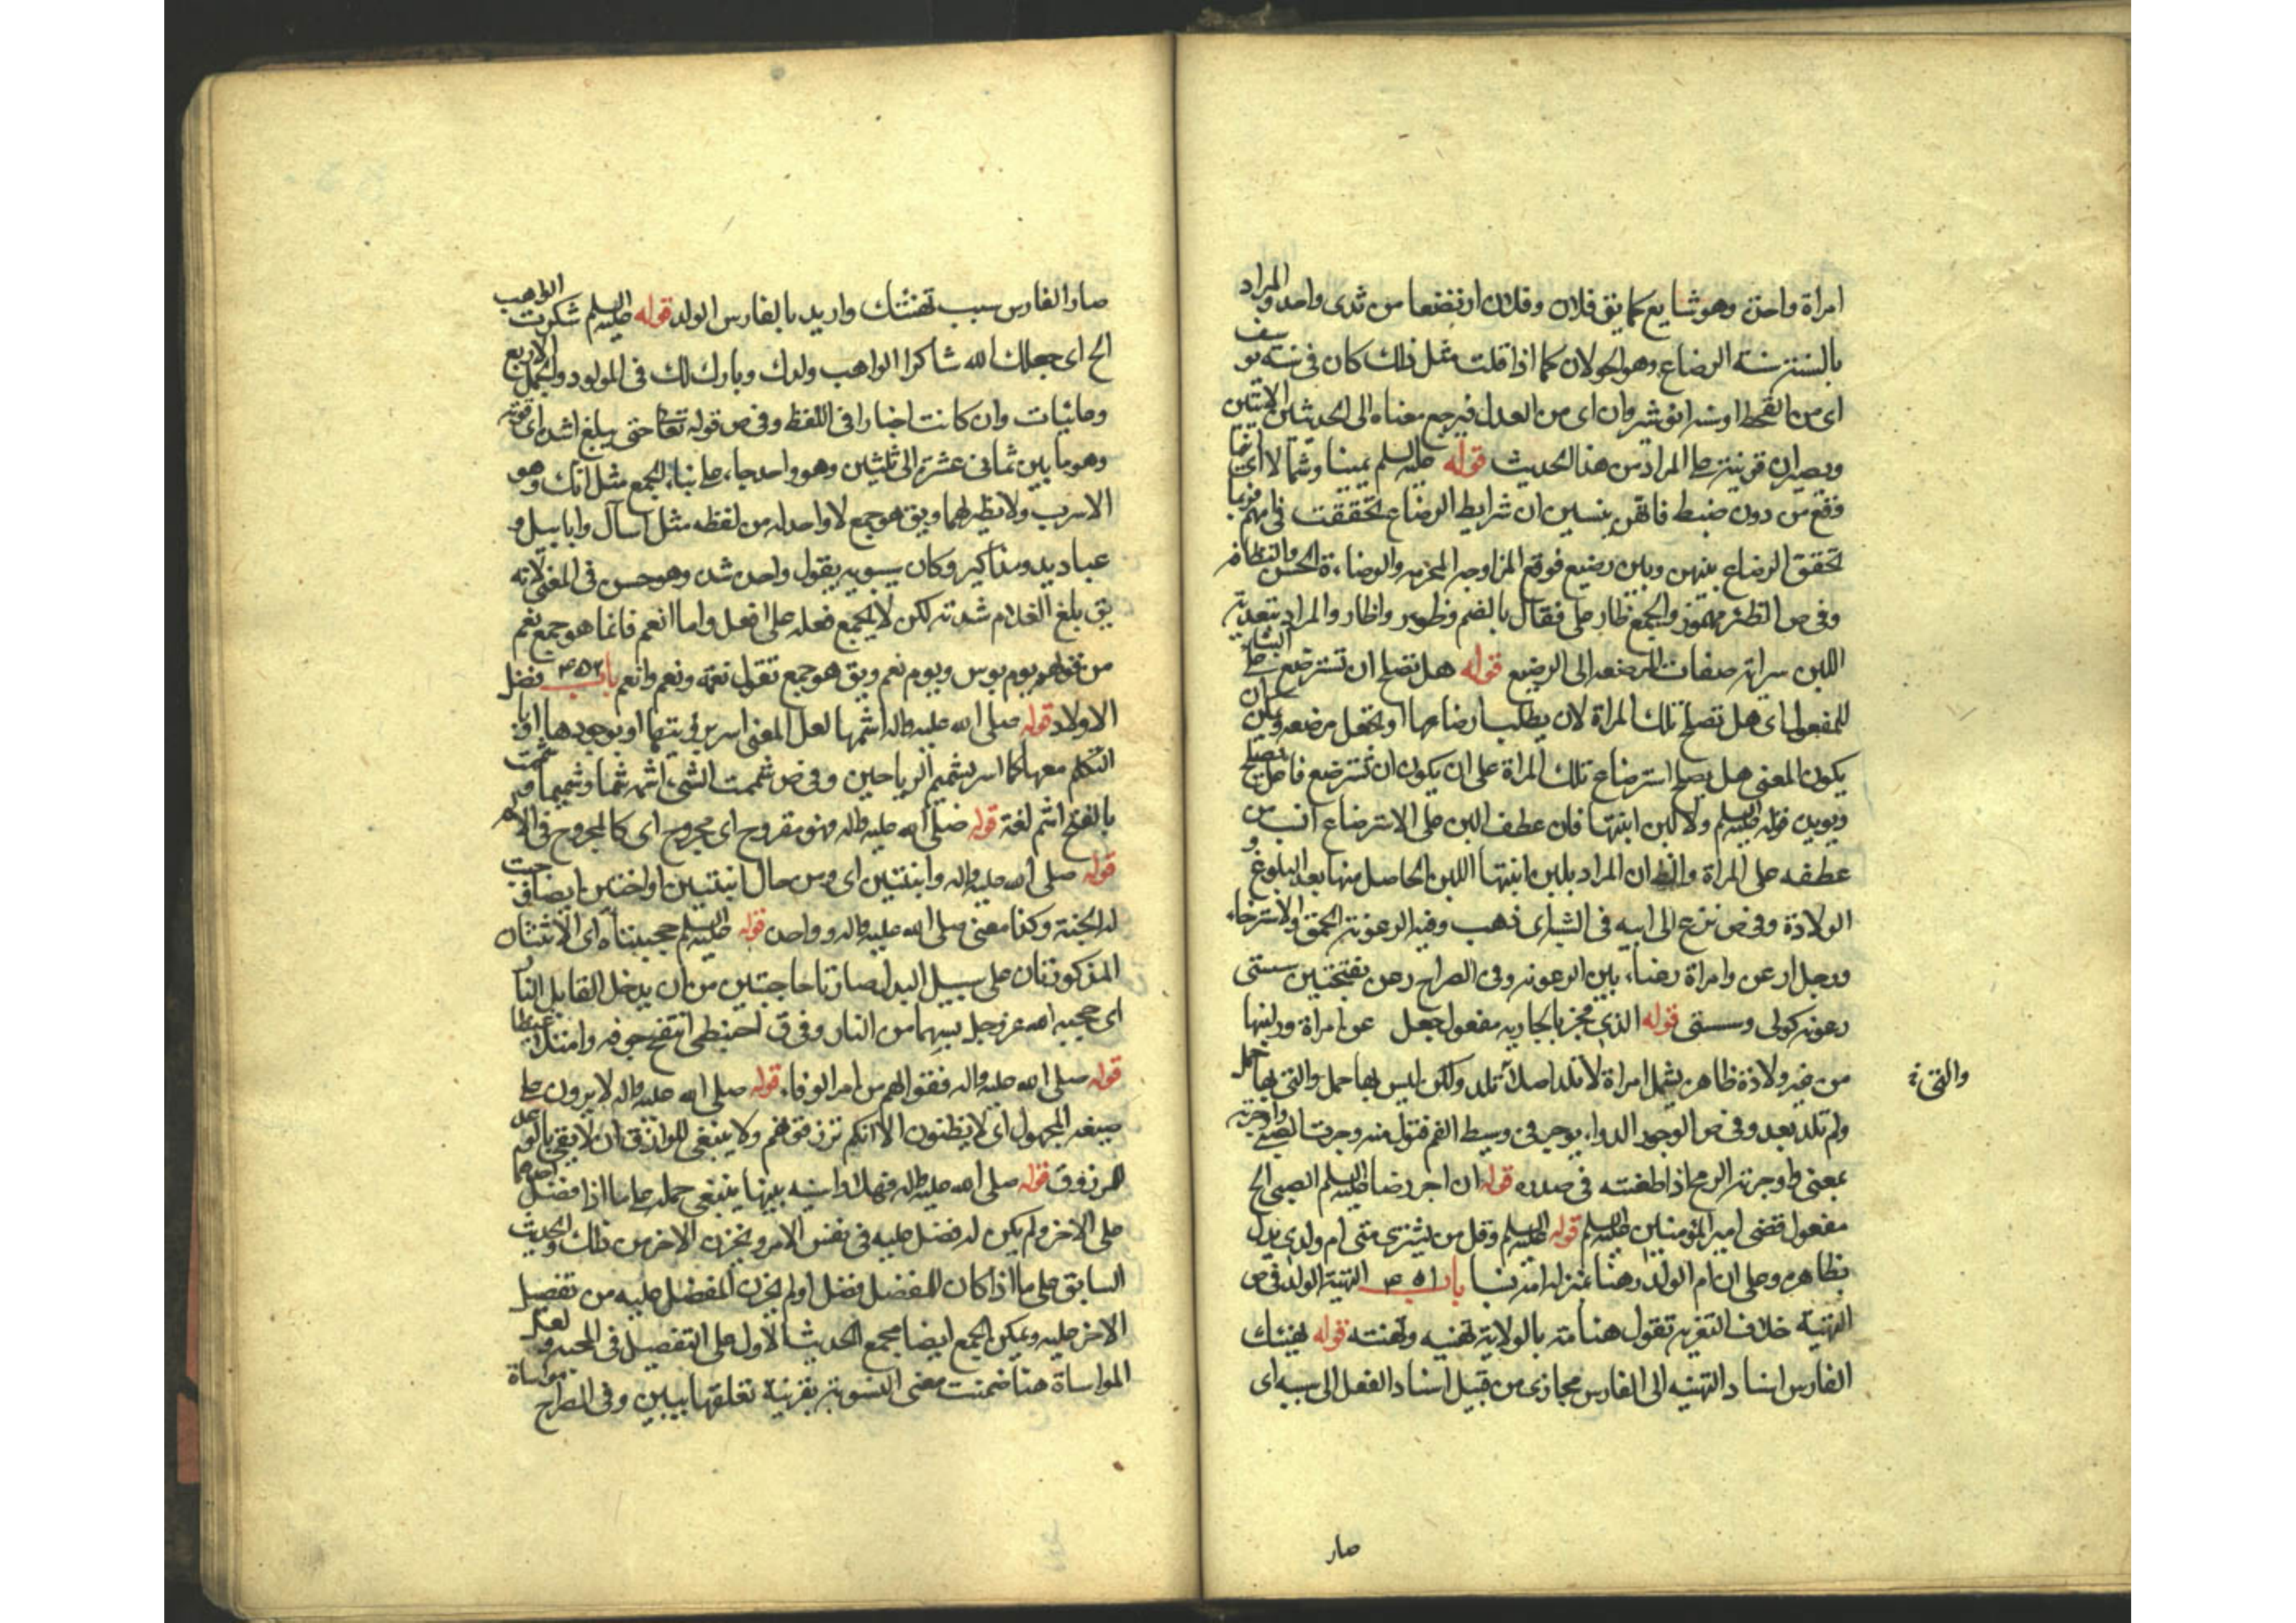 امراة واحدة وهو شايع كما يق فلان وفلان ارتضعا من ثدى واحد والمراد
بالسنتين سنة الرضاع وهو الحولان كما اذا قلت مثل ذلك كان فى سنة يوسف
اى من القحط او سنة انوشروان اى من العدل فيرجع معناه الى الحديثين الاتيين
ويصيران قرينة على المراد من هذا الحديث قوله عليه السلم يمينا وشمالا اى
فقع من دون ضبط ينسين ان شرايط الرضاع تحققت فى ايهم فربما
تحقق الرضاع بينهن وبين رضيع فوقع المزاوجه المحرمه والوضاءة الحسن والنظافه
وفى ص الظئر مهموز والجمع ظار على فعال بالضم وظوور واظار والمراد بتعدية
اللبن سراية صفات المرضعه الى الرضيع قوله هل تصلح ان تسترضع على البناء
للمفعول اى هل تصلح تلك المراة لان يطلب ارضاعها او تجعل مرضعه ويمكن ان
يكون المعنى هل يصلح استرضاع تلك المراة على ان يكون ان تسترضع فاعل تصلح
ويويده قوله عليه السلم ولا لبن ابنتها فان عطف اللبن على الاسترضاع انسب من
عطفه على المراة والظ ان المراد بلبن ابنتها اللبن الحاصل منها بعد البلوغ و
الولادة وفى ص نزع الى ابيه فى الشبه اى ذهب وفيه الرعونة الحمق والاسترخاء
ورجل ارعن وامراة رعناء بين الرعونه وفى الصراح رعن بفتحتين سستى
رعونه كولى وسستى قوله الذى فجر بالجاريه مفعول جعل عن امراة در لبنها
من غير ولادة ظاهره يشمل امراة لا تلد اصلا وتلد ولكن ليس بها حمل والتى بها حمل
والتى
ولم تلد بعد وفى ص الوجور الدواء يوجر فى وسط الفم فتقول منه وجرت الصبى واوجرته
بمعنى واوجرته الرمح اذا طعنته فى صدره قوله ان اجر رضاع عليه السلم الصبى الخ
مفعول قضى امير المؤمنين عليه السلم قوله عليه السلم وقل من يشترى منى ام ولدى يدل
بظاهره وعلى ان ام الولد رهنا بمنزلة امته باب ٤٥١ التهنية الولد فى ص
التهنية خلاف التعزية تقول هناته بالولاية تهنيه وتهنئه قوله ليهنئك
الفارس اسناد التهنيه الى الفارس مجازى من قبيل اسناد الفعل الى سببه اى
صار
صار الفارس سبب تهنئتك واريد بالفارس الولد قوله عليه السلم شكرت الواهب
الخ اى جعلك الله شاكرا الواهب ولدك وبارك لك فى المولود والجمل الاربع
دعائيات وان كانت اخبارا فى اللفظ وفى ص قوله تعالى حتى يبلغ اشده اى قوته
وهو ما بين ثمانى عشرة الى ثلثين وهو واحد جاء على بناء الجمع مثل انك وهو
الاسرب ولا نظير لهما ويق هو جمع لا واحد له من لفظه مثل آسال وابابيل و
عباديد ومذاكير وكان سيبويه يقول واحده شده وهو حسن فى المعنى لانه
يق بلغ الغلام شدته لكن لا يجمع فعله على افعل واما انعم فانما هو جمع نعم
من قولهم يوم بوس ويوم نعم ويق هو جمع تقول نعمة ونعم وانعم باب ٤٥٢ فضل
الاولاد قوله صلى الله عليه واله اشمها لعل المعنى اسر برؤيتها او بوجودها او
التكلم معها كما اسر بشميم الرياحين وفى ص شممت الشىء اشمه شما وشميما وشممت
بالفتح اشم لغة قوله صلى الله عليه واله فهو مقروح اى مجروح اى كالمجروح فى الالم
قوله صلى الله عليه واله وابنتين اى ومن عال ابنتين او اختين ايضا وجبت
له الجنة وكذا معنى صلى الله عليه واله وواحدة قوله عليه السلم حجبتاه اى الاثنتان
المذكورتان على سبيل البدل صارتا حاجبتين من ان يدخل القايل النار
اى حجبه الله عز وجل بسببهما من النار وفى ق احبنطى انتفخ جوفه وامتلا غيظا
قوله صلى الله عليه واله ففوا لهم من امر الوفاء قوله صلى الله عليه واله لا يرون على
صيغه المجهول اى لا يظنون الا انكم ترزقونهم ولا ينبغى للرازق ان لا يفى بالوعد
للمرزوق قوله صلى الله عليه واله فهلا واسيت بينهما ينبغى حمله على ما اذا فضل احدهما
على الاخر ولم يكن له فضل عليه فى نفس الامر ويحزن الاخر من ذلك والحديث
السابق على ما اذا كان للمفضل فضل او لم يحزن المفضل عليه من تفضيل
الاخر عليه ويمكن الجمع ايضا بجمع الحديث الاول على التفضيل فى المحبه ولعل
المواساة هنا ضمنت معنى التسوية بقرينة تعلقها ببين وفى الصراح مواساة